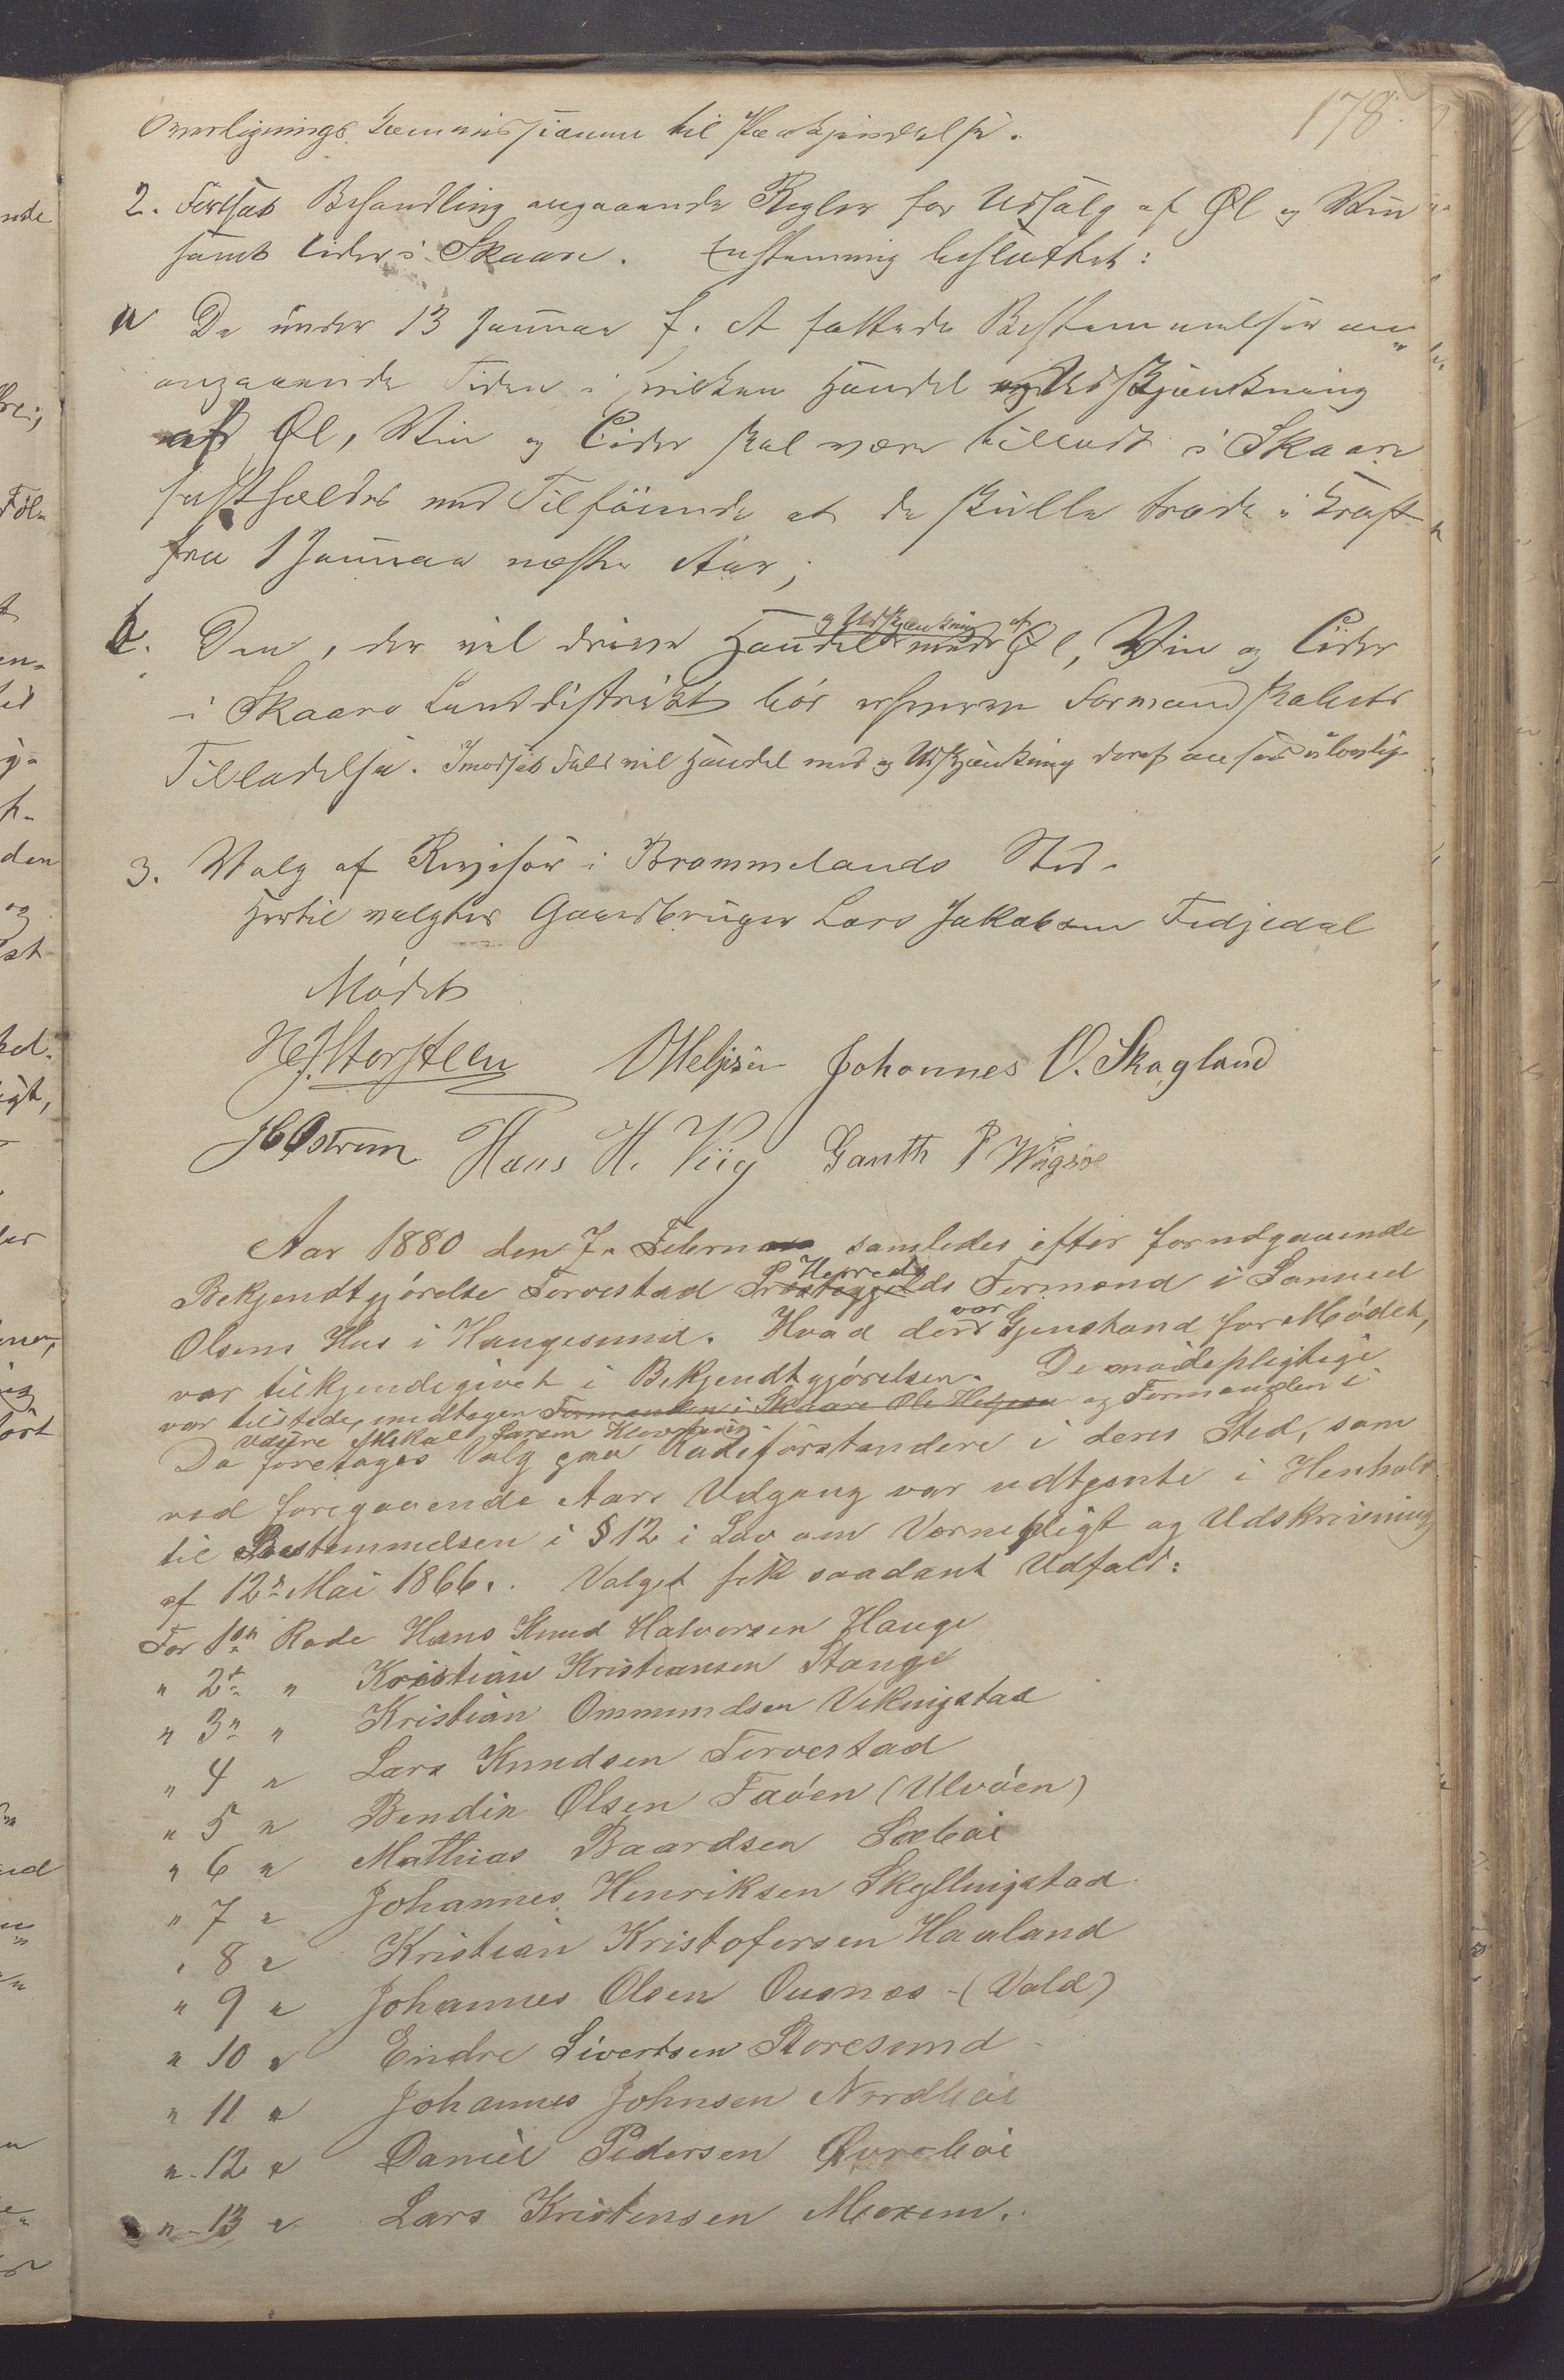 178.
Overlignings Kommissionen til Paakjendelse.
2. Fortsat Behandling angaaende Regler for Udsalg af Øl og Vin
samt Cider i Skaare. Enstemmig besluttet:
a De under 13 Januar f. A fattede Bestemmelser an
angaaende Tiden i hvilken Handel og Udskjænkning
af Øl, Vin og Cider skal være tilladt i Skaare
fastholdes med Tilføiende at de skulle træde i Kraft
fra 1 Januar næste Aar;
b. Den, der vil drive Handel med og Udskjænkning af Øl, Vin og Cider
i Skaare Landdistrikt bør erhverve Formandskabets
Tilladelse. Imodsat Fald vil Handel med og Udskjænkning deraf ansees ulovlig.
3. Valg af Revisor i Brommelands Sted.
Hertil valgtes Gaardbruger Lars Jakobsen Fedjedal
Mødet
H J Storsteen O Helgesen Johannes O. Skagland
J C Østrem Hans H. Viig Gauth P Wigsøe
Aar 1880 den 7. Februar samledes efter forudgaaende
Bekjendtgjørelse Torvestad Præstegjelds Herreds Formænd i Samuel
Olsens Hus i Haugesund. Hvad der var Gjenstand for Mødet,
var tilkjendegivet i Bekjendtgjørelsen. De mødepligtige
var tilstede, undtagen Formanden i Skaare Ole Helgesen og Formanden i
Udsire Mikal Larsen Klovning.
Da foretages Valg paa Rodeforstandere i deres Sted, som
ved foregaaende Aars Udgang var udtjente i Henhold
til Bestemmelsen i § 12 i Lov om Værnepligt og Udskrivning
af 12te Mai 1866. Valget fik saadant Udfald:
For 1ste Rode Hans Knud Halvorsen Hauge
" 2. " Kristian Kristiansen Stange
" 3. " Kristian Ommundsen Vikingstad
" 4 " Lars Knudsen Torvestad
" 5 " Bendix Olsen Faøen (Ulvøen)
" 6 " Mathias Baardsen Sæbøe
" 7 " Johannes Henriksen Skyllingstad
" 8 " Kristian Kristofersen Haaland
" 9 " Johannes Olsen Qusnes (Vold)
" 10 " Endre Sivertsen Storesund
" 11 " Johannes Johnsen Nordbøe
" 12 " Daniel Pedersen Øvrebøe
" 13 " Lars Kristensen Moxem.